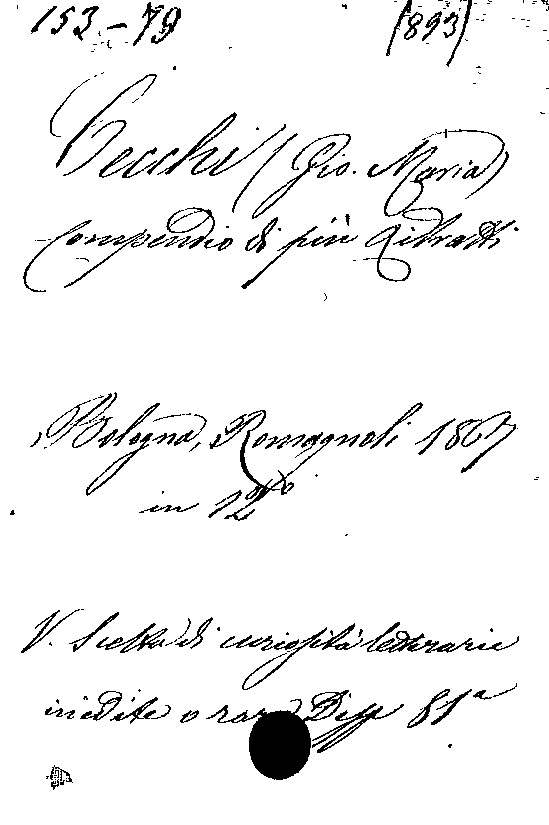 153-79 (893)
Cecchi (Gio. Maria)
Compendio di più Ritratti
Bologna, Romagnoli 1867
in 12°
V. Scelta di curiosità letterarie
inedite o rare Disp 81ª